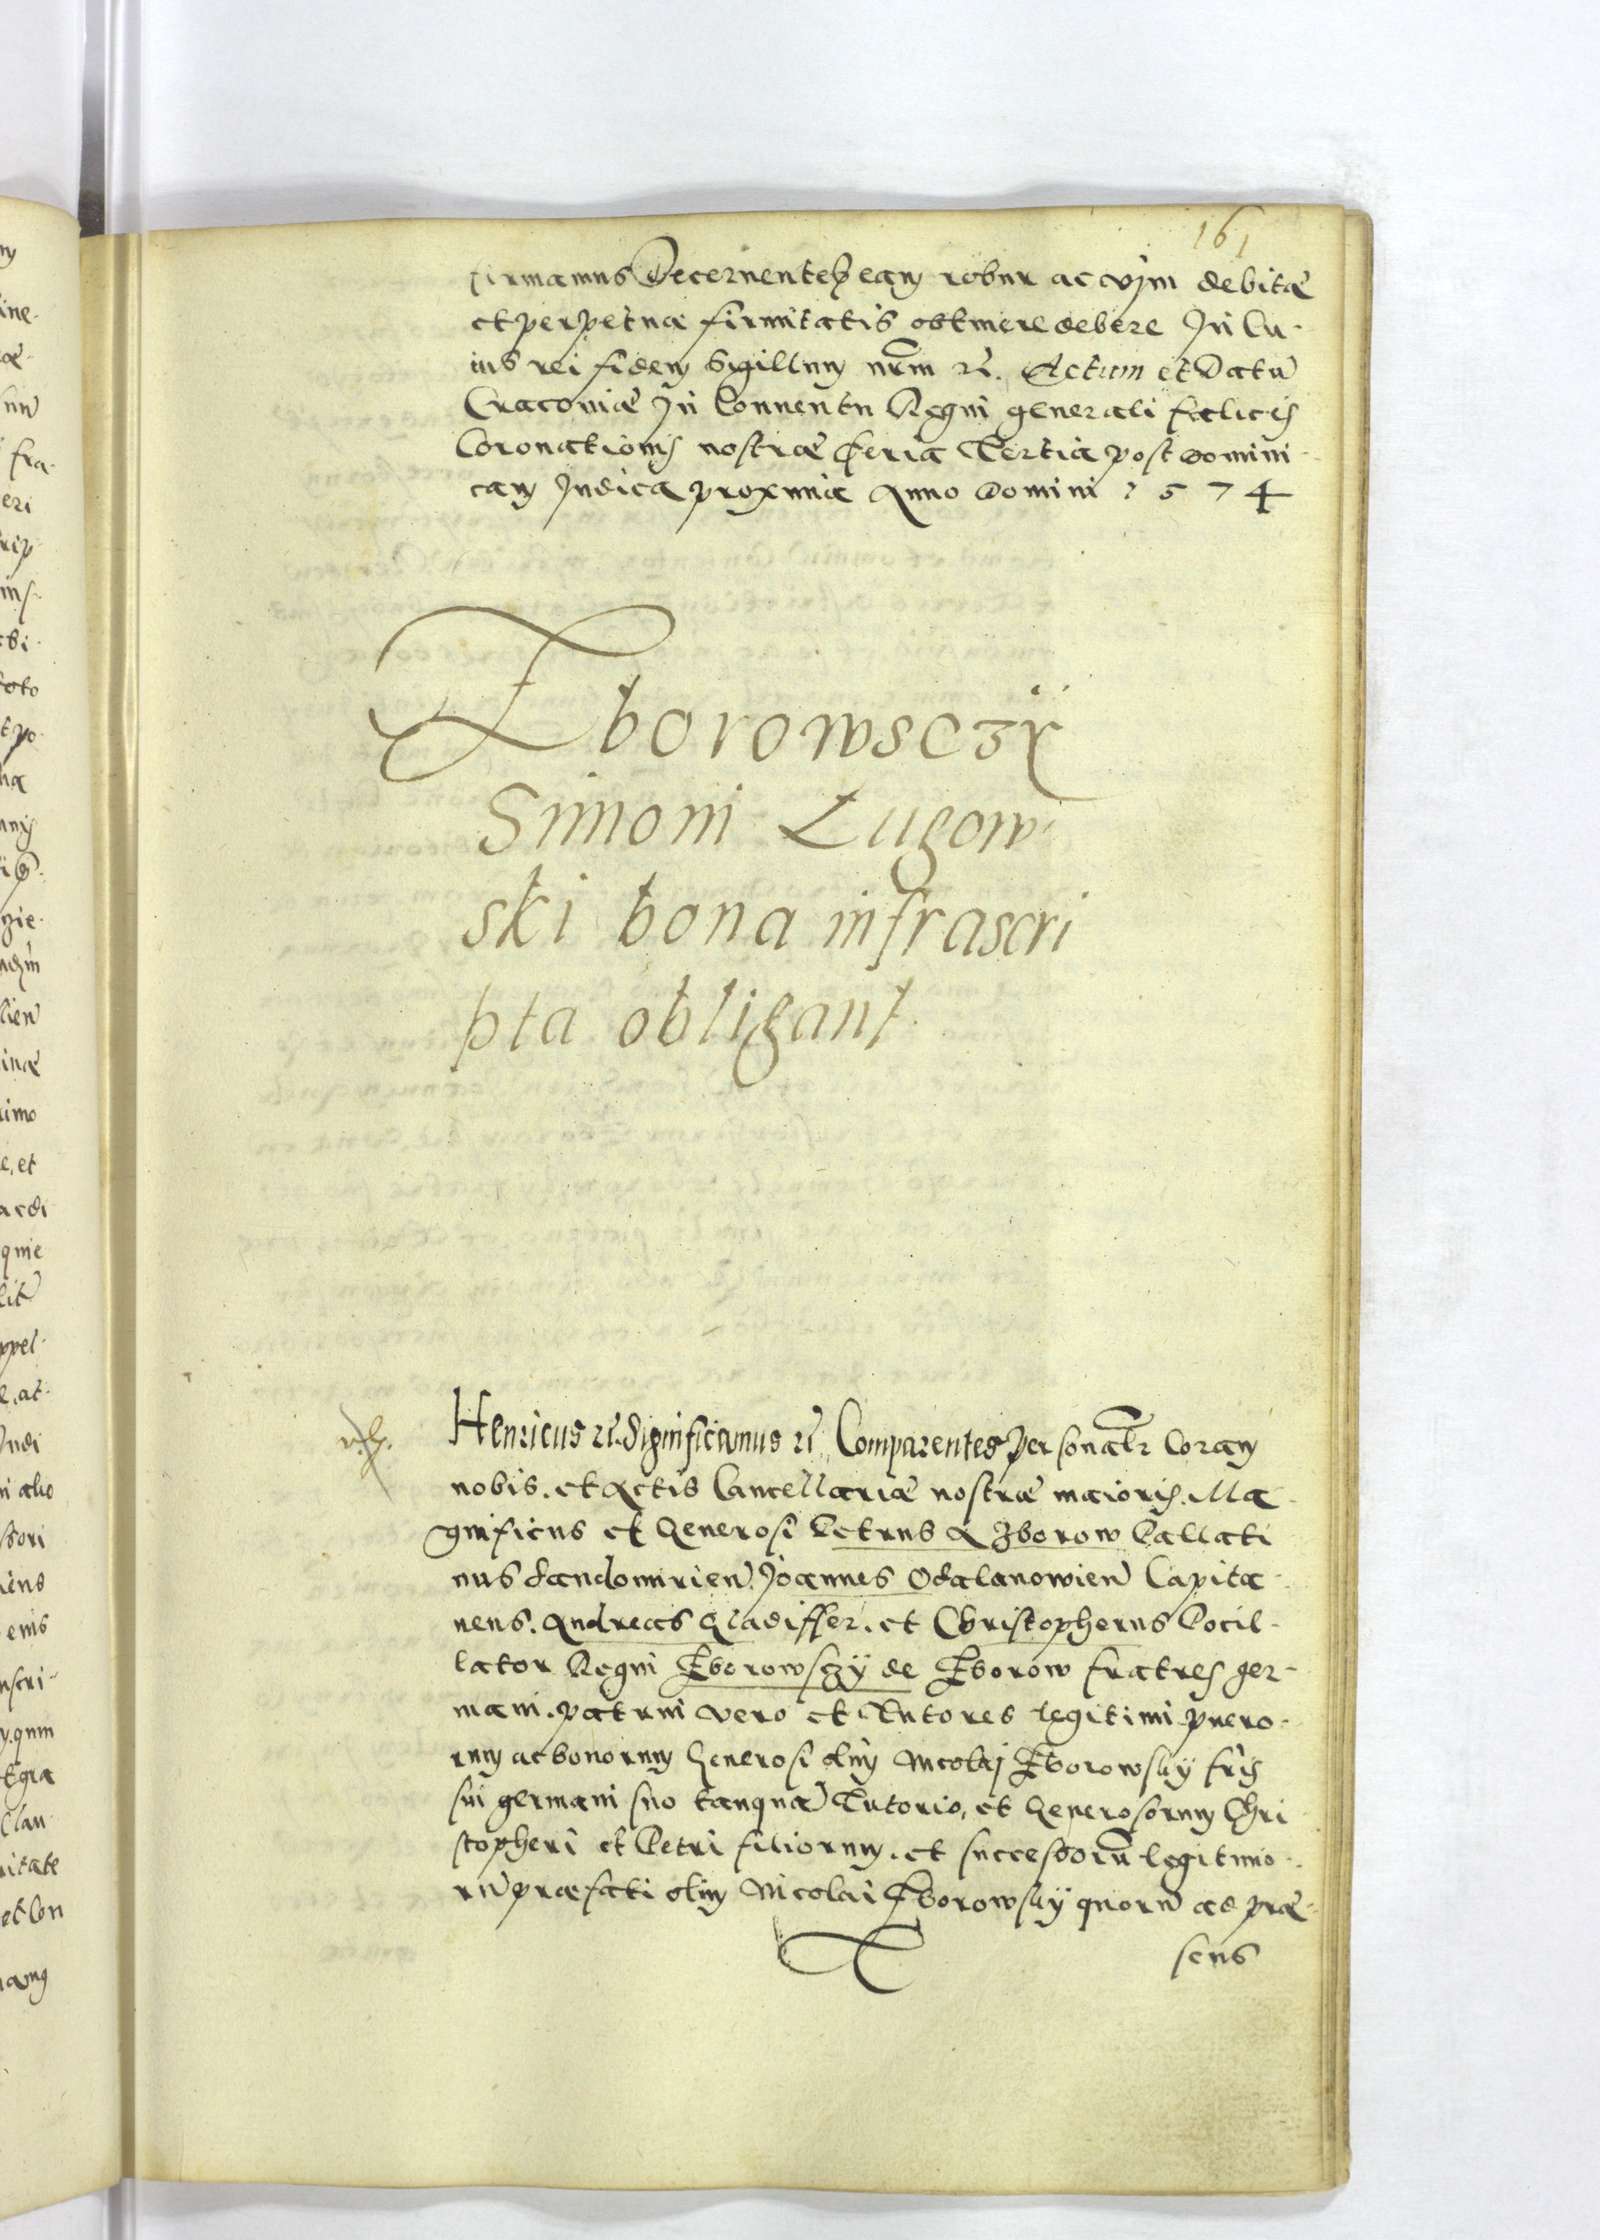 161
firmamus Decernentes eam robur ac vim debitæ
et perpetuæ firmitatis obtinere debere In Cu-
ius rei fidem Sigillum nrm etc. Actum et Datū
Cracoviæ In Conventu Regni generali fælicis
Coronationis nostræ feria Tertia post Domini-
cam Iudica proxima Anno Domini 1574
Zborowsczÿ
Simoni Lugow
ski bona infrascri
pta obligant
Henricus etc. Significamus etc. Comparentes personalr Coram
nobis. et Actis Cancellariæ nostræ maioris. Ma-
gnificus et Generosi Petrus a Zborow Pallati
nus Sandomirien. Joannes Odalanowien Capita-
neus. Andreas Gladiffer. et Christopherus Pocil-
lator Regni Zborowsczÿ de Zborow fratres ger-
mani. patrui vero et Tutores legitimi puero-
rum ac bonorum Generosi olim Nicolaj Zborowskÿ fris
sui germani suo tanquā Tutorio, et Generosorum Chri
stopheri et Petri filiorum. et successorū legitimo-
rū præfati olim Nicolai Zborowskÿ quorū ad præ-
sens